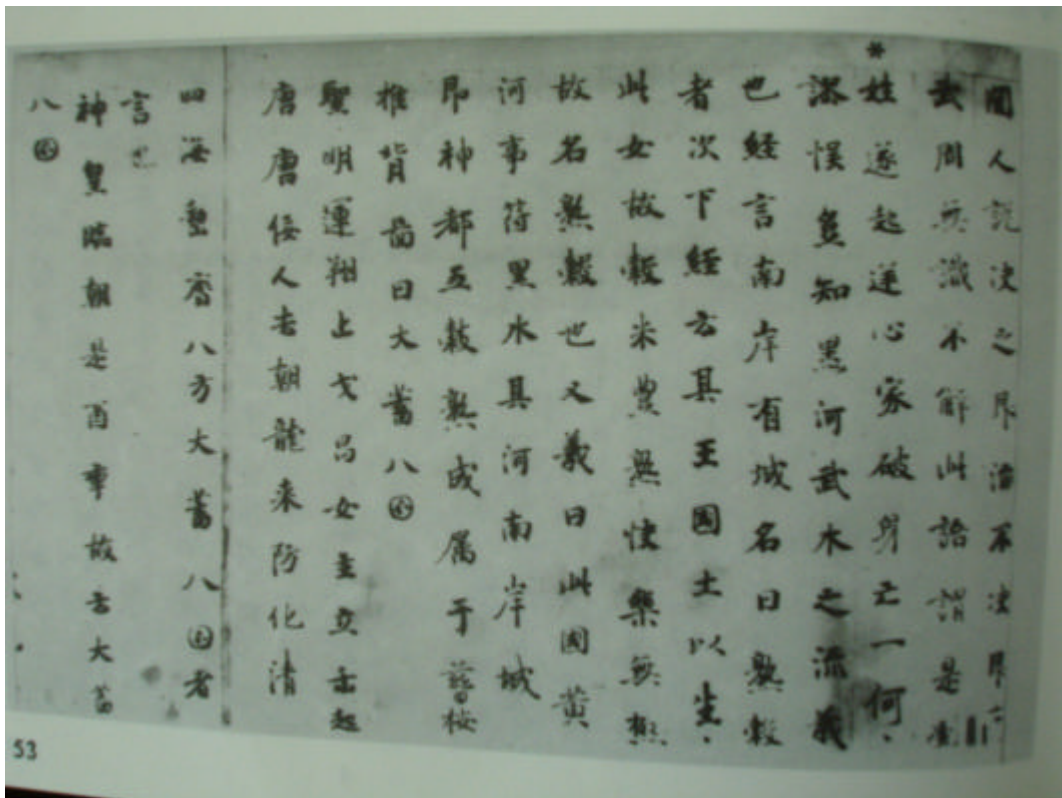 聞人說決之即治不決即
問無識不解此語謂是
姓遂起逆心家破身亡一何
謬悞豈知黑河武水之流義
也經言南岸有城名曰熟穀
者次下經云其王國土以生
此女故穀米豊熟快樂無極
故名熟穀也又義曰此國黃
河事符黑水其河南岸城
即神都五穀熟成属于謹按
推背圖曰大蓄八
聖明運翔止戈昌女主立正起
唐唐佞人去朝龍来防化清
四海整齊八方大蓄八者
言
神皇臨朝是酉年故云大蓄
八
53